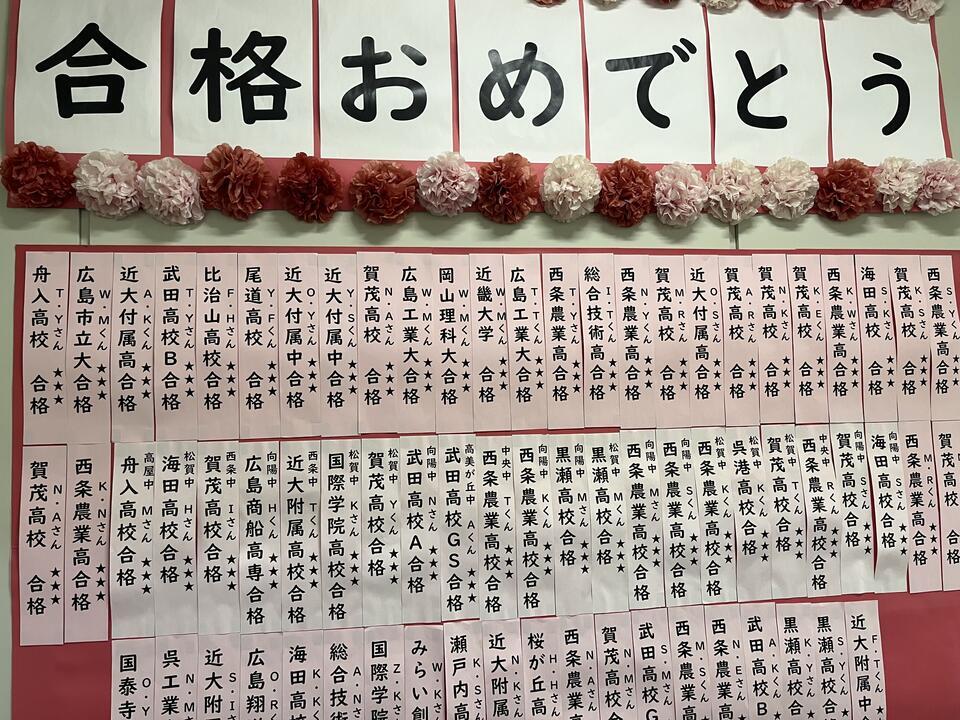 合格おめでとう
S・Yくん ★★
西条農業高合格
K・Sさん ★★
賀茂高校 合格
S・Kさん ★★
海田高校 合格
K・Wさん ★★
西条農業高 合格
K・Eくん ★★
賀茂高校 合格
N・Kさん ★★
賀茂高校 合格
A・Rさん ★★
賀茂高校 合格
O・Sくん ★★
近大付属高合格
M・Rさん ★★
賀茂高校 合格
N・Yくん ★★
西条農業高合格
I・Tくん ★★
総合技術高 合格
T・Yさん ★★
西条農業高合格
T・Tくん ★★★
広島工業大合格
N・Mさん ★★★
近畿大学 合格
W・Mくん ★★★
岡山理科大合格
W・Mくん ★★★
広島工業大合格
N・Aさん ★★★
賀茂高校 合格
Y・Sくん ★★★
近大付属中合格
O・Yさん ★★★
近大付属中合格
Y・Fくん ★★★
尾道高校 合格
F・Hさん ★★★
比治山高校合格
T・Yさん ★★★
武田高校B合格
A・Kくん ★★★
近大付属高合格
W・Mくん ★★★
広島市立大合格
T・Yさん ★★★
舟入高校 合格
賀茂高校 合格
M・Rくん ★★
西条農業高 合格
向陽中 Sさん ★★
海田高校合格
向陽中 Sさん ★★
賀茂高校合格
中央中 Rくん ★★
西条農業高校合格
松賀中 Tくん ★★
賀茂高校合格
松賀中 Kくん ★★
呉港高校合格
松賀中 Kくん ★★
西条農業高校合格
向陽中 Sくん ★★
西条農業高校合格
向陽中 Mさん ★★
西条農業高校合格
松賀中 Mくん ★★
黒瀬高校合格
向陽中 Mさん ★★
黒瀬高校合格
向陽中 Kさん ★★
西条農業高校合格
中央中 Tくん ★★
西条農業高校合格
高美が丘中 Aくん ★★★
武田高校GS合格
向陽中 Nさん ★★★
武田高校A合格
松賀中 Yくん ★★★
賀茂高校合格
松賀中 Kさん ★★★
国際学院高校合格
西条中 Tくん ★★★
近大附属高校合格
向陽中 Hくん ★★★
広島商船高専合格
西条中 Iさん ★★★
賀茂高校合格
松賀中 Hさん ★★★
海田高校合格
高屋中 Mさん ★★★
舟入高校合格
K・Nさん ★★★
西条農業高合格
N・Aさん ★★★
賀茂高校 合格
F・Tくん
近大附属中
S・Yくん
黒瀬高校合
K・Yさん
黒瀬高校合
A・Kくん
武田高校B
N・Eさん
西条農業高
M・Sくん
西条農業高
S・Mさん
武田高校G
N・Kさん
賀茂高校合
N・Aさん
西条農業
H・Hさん
桜が丘高
N・Kさん
近大附属
K・Sさん
瀬戸内高
W・K
みらい創
Z・K
国際学院
A・N
総合技術
K・K
海田高校
O・R
広島翔
S・I
近大附
N・M
呉工業
O・Y
国泰寺